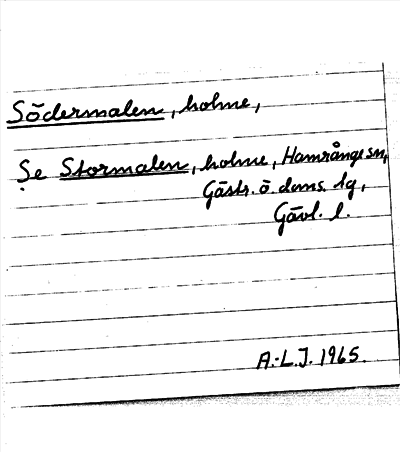 Södermalen, holme,
Se Stormalen, holme, Hamrånge sn,
Gästr. ö. doms. lg,
Gävl. l.
A.-L.J. 1965.